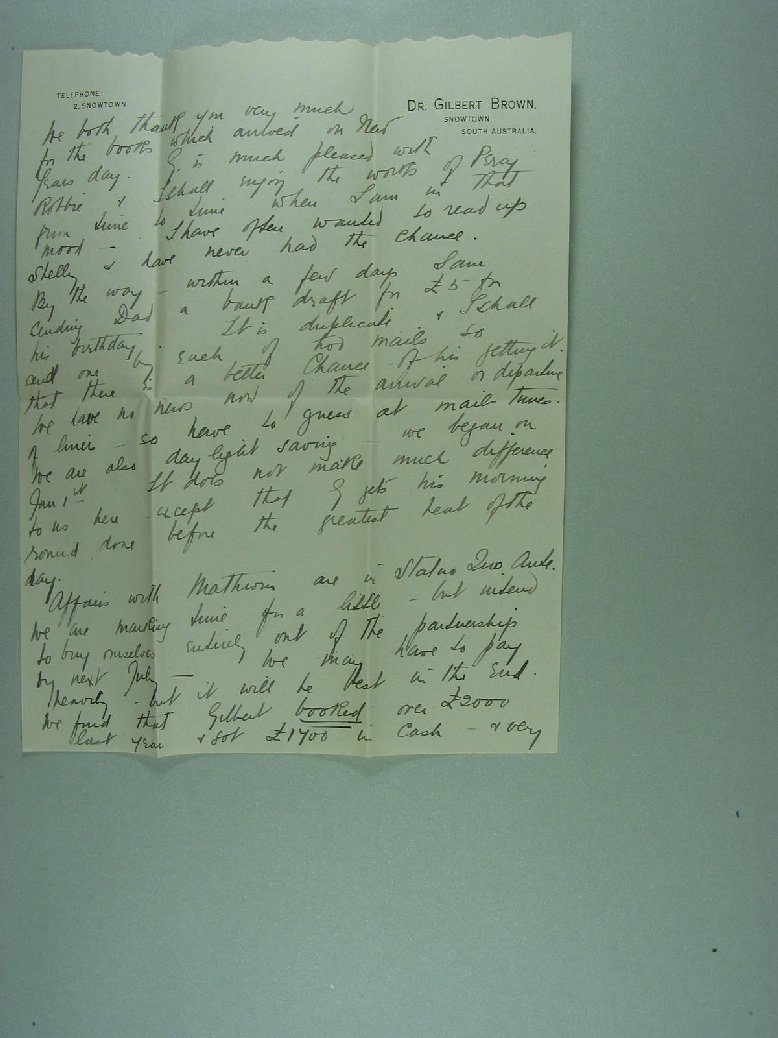 TELEPHONE:
2, SNOWTOWN
DR. GILBERT BROWN,
SNOWTOWN
SOUTH AUSTRALIA.
We both thank you very much
for the books which arrived on New
Years day. G is much pleased with
Robbie & I shall enjoy the works of Percy
from time to time when I am in that
mood - I have often wanted to read up
Shelly & have never had the chance.
By the way - within a few days I am
sending Dad a bank draft for £5 for
his birthday. It is duplicate & I shall
send one by each of two mails so
that there is a better chance of his getting it.
We have no news now of the arrival or departure
of liners - so have to guess at mail times.
We are also daylight saving - we began on
Jan 1st It does not make much difference
to us here - except that G gets his morning
round done before the greatest heat of the
day.
Affairs with are in Status Quo Ante.
We are marking time for a little - but intend
to buy ourselves entirely out of the partnership
by next July - We may have to pay
heavily - but it will be best in the end.
We find that Gilbert booked over £2000
last year & got £1700 in cash - & very